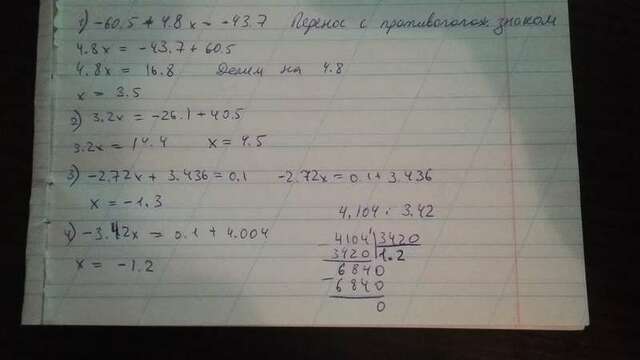 1) -60.5 + 4.8x = -43.7 Перенос с противополож знаком
4.8x = -43.7 + 60.5
4.8x = 16.8 Делим на 4.8
x = 3.5
2) 3.2x = -26.1 + 40.5
3.2x = 14.4 x = 4.5
3) -2.72x + 3.436 = 0.1 -2.72x = 0.1 + 3436
x = -1.3
4.104 : 3.42
4) -3.42x = 0.1 + 4.004
x = -1.2
4104 | 3420
3420 | 1.2
6840
6840
0